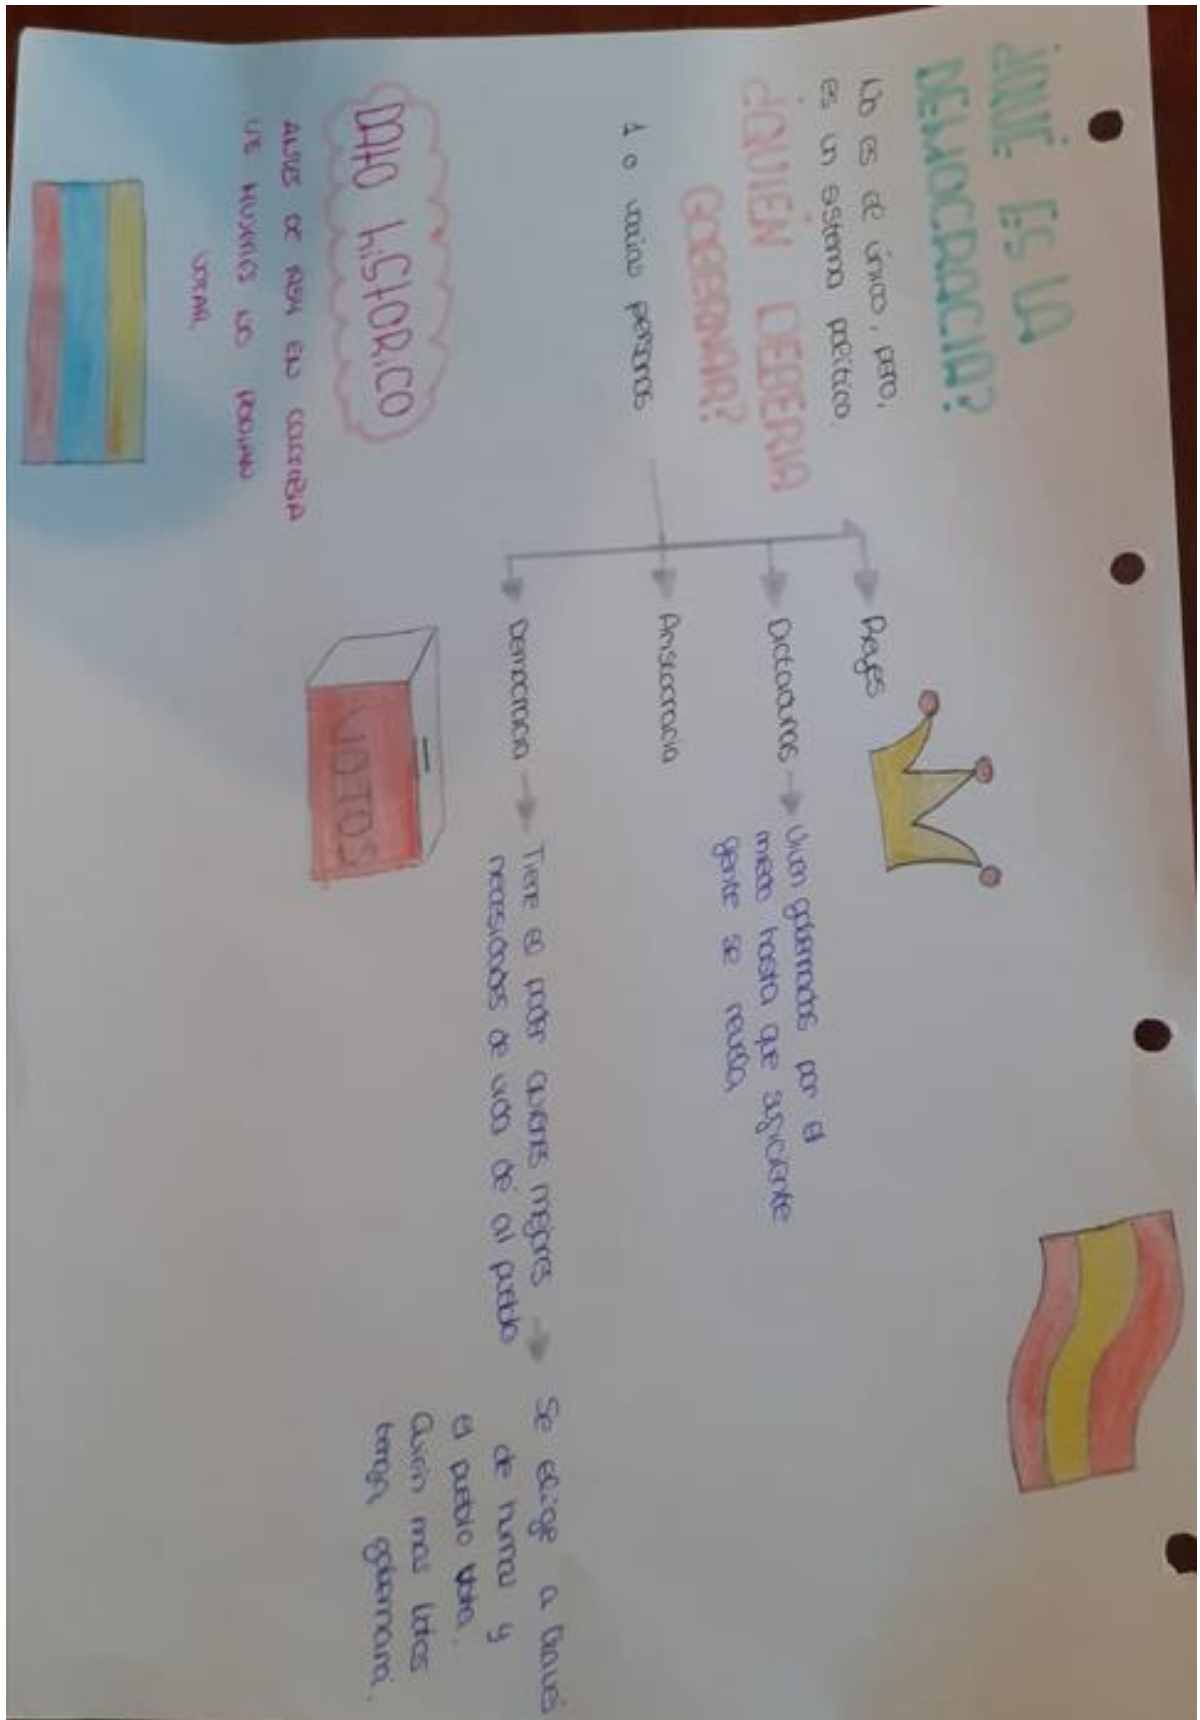 ¿QUÉ ES LA
DEMOCRACIA?
No es el único, pero,
es un sistema político.
¿QUIÉN DEBERIA
GOBERNAR?
1 o varias personas
Reyes
Dictaduras
Viven gobernados por el
miedo hasta que suficiente
gente se revela
Aristocracia
Democracia
Tiene el poder quienes mejores
necesidades de vida dé al pueblo
Se elige a través
de humos y
el pueblo vota.
Quién mas votos
tenga, gobernará.
DATO hiSTÓRiCO
ANTES DE EN COLOMBIA
MUJERES NO PODIAN
VOTAR.
VOTOS